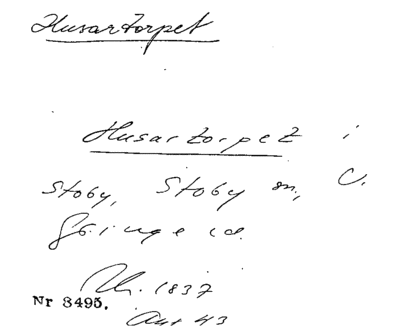 Husartorpet
Husartorpet i
Stoby, Stoby sn, V.
Göinge hd.
1837
Nr 3495.
43